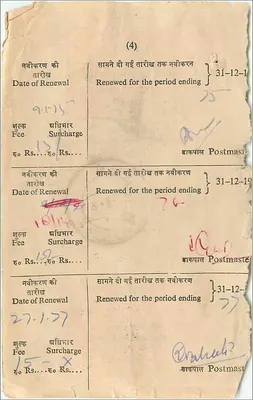 (4)
नवीकरण की सामने दी गई तारीख तक नवीकरन
तारीख } 31-12-1
Date of Renewal Renewed for the period ending
75
शुल्क अधिभार
Fee Surcharge
रु० Rs....रु० Rs.... डाकपाल Postmast
15
नवीकरण की सामने दी गई तारीख तक नवीकरण
तारीख } 31-12-19
Date of Renewal Renewed for the period ending
76
शुल्क अधिभार
Fee Surcharge
रु० Rs....रु० Rs.... डाकपाल Postmaste
15
नवीकरण की सामने दी गई तारीख तक नवीकरण
तारीख } 31-12-
Date of Renewal Renewed for the period ending
27-1-77 77
शुल्क अधिभार
Fee Surcharge
15 - x
रु० Rs....रु० Rs.... डाकपाल Postmast